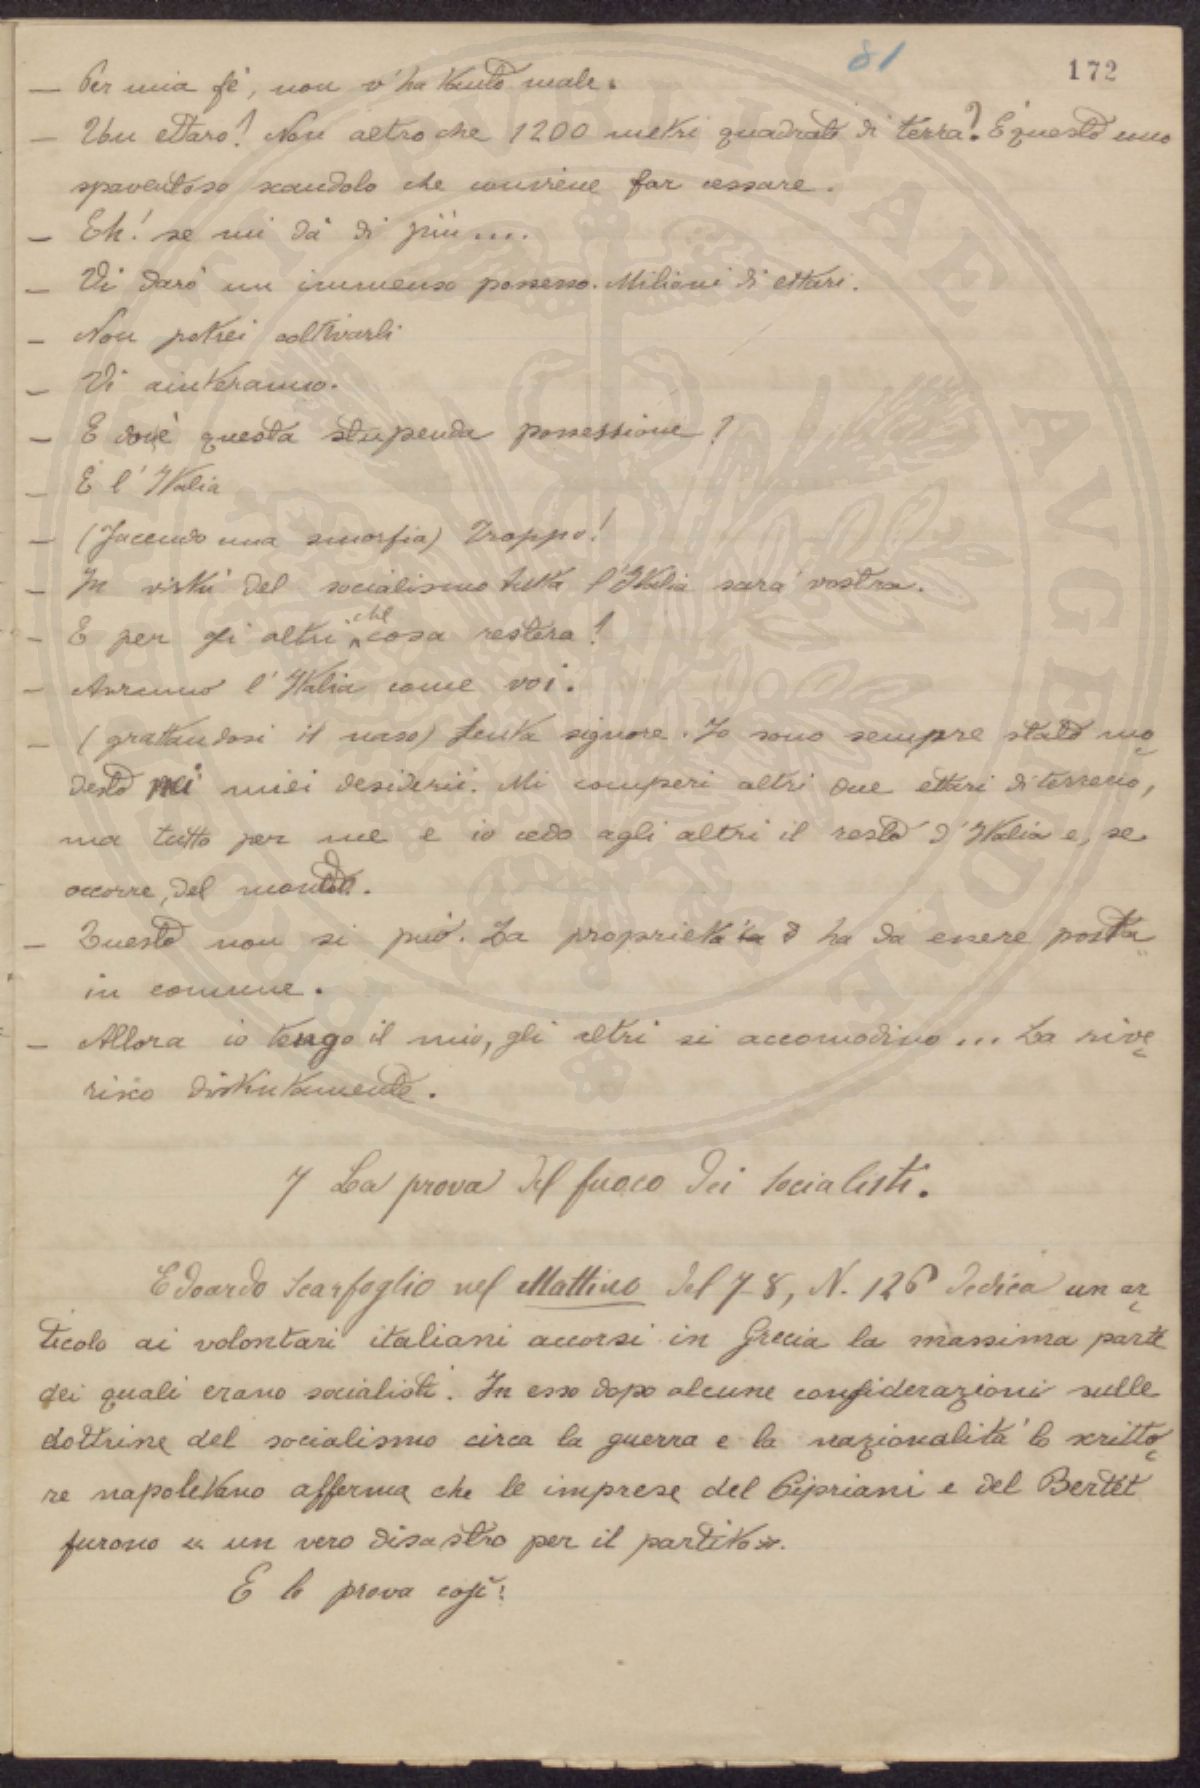 81
172
— Per mia fé, non v'ha tanto male.
— Un ettaro! Non altro che 1200 metri quadrati di terra? È questo uno
spaventoso scandolo che conviene far cessare.
— Eh! se mi dà di più....
— Vi darò un immenso possesso. Milioni di ettari.
— Non potrei coltivarli
— Vi aiuteranno.
— E dov'è questa stupenda possessione?
— È l'Italia
— (Facendo una smorfia) Troppo!
— In virtù del socialismo tutta l'Italia sarà vostra.
— E per gli altri che cosa restera?
— Avranno l'Italia come voi.
— (grattandosi il naso) Senta signore. Io sono sempre stato mo
desto nei miei desiderii. Mi comperi altri due ettari di terreno,
ma tutto per me e io cedo agli altri il resto d'Italia e, se
occorre, del mondo.
— Questo non si può. La proprietà ha da essere posta
in comune.
— Allora io tengo il mio, gli altri si accomodino... La rive
risco distintamente.
7 La prova del fuoco dei socialisti.
Edoardo Scarfoglio nel Mattino del 7-8, N. 126 dedica un ar
ticolo ai volontari italiani accorsi in Grecia la massima parte
dei quali erano socialisti. In esso dopo alcune considerazioni sulle
dottrine del socialismo circa la guerra e la nazionalità lo scritto
re napoletano afferma che le imprese del Cipriani e del Bertet
furono « un vero disastro per il partito».
E lo prova così:
PVBLITAE AVGENDAE